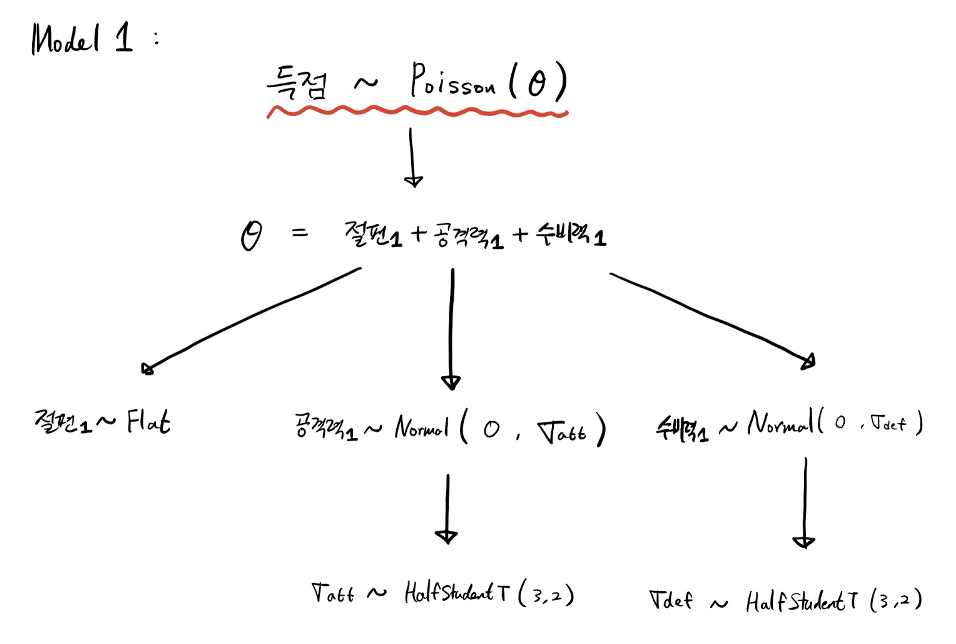 Model 1 :
득점 ~ Poisson (θ)
θ = 절편1 + 공격력1 + 수비력1
절편1 ~ Flat
공격력1 ~ Normal ( 0 , σatt )
수비력1 ~ Normal ( 0 , σdef )
σatt ~ HalfStudentT (3,2)
σdef ~ HalfStudentT (3,2)